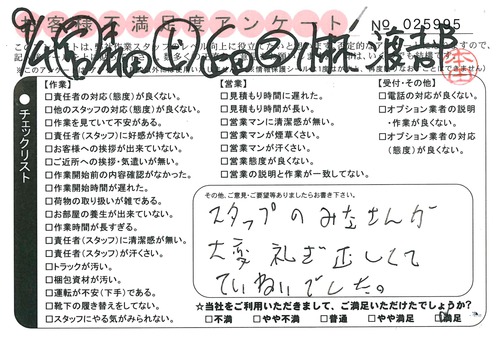 お客様不満足度アンケート
No 025995
【作業】
□責任者の対応(態度)が良くない。
□他のスタッフの対応(態度)が良くない。
□作業を見ていて不安がある。
□責任者(スタッフ)に好感が持てない。
□お客様への挨拶が出来ていない。
□ご近所への挨拶・気遣いが無い。
□作業開始前の内容確認がなかった。
□作業開始時間が遅れた。
□荷物の取り扱いが雑である。
□お部屋の養生が出来ていない。
□作業時間が長すぎる。
□責任者(スタッフ)に清潔感が無い。
□責任者(スタッフ)が汗くさい。
□トラックが汚い。
□梱包資材が汚い。
□運転が不安(下手)である。
□靴下の履き替えをしてない。
□スタッフにやる気がみられない。
【営業】
□見積もり時間に遅れた。
□見積もり時間が長い。
□営業マンに清潔感が無い。
□営業マンが煙草くさい。
□営業マンが汗くさい。
□営業態度が良くない。
□営業の説明と作業が一致してない。
【受付・その他】
□電話の対応が良くない。
□オプション業者の説明
・作業が良くない。
□オプション業者の対応
(態度)が良くない。
チェックリスト
その他、ご意見・ご要望等ありましたらお書き下さい。
スタッフのみなさんが
大変礼ぎ正しくて
ていねいでした。
☆当社をご利用いただきまして、ご満足いただけたでしょうか?
□不満 □やや不満 □普通 □やや満足 □満足